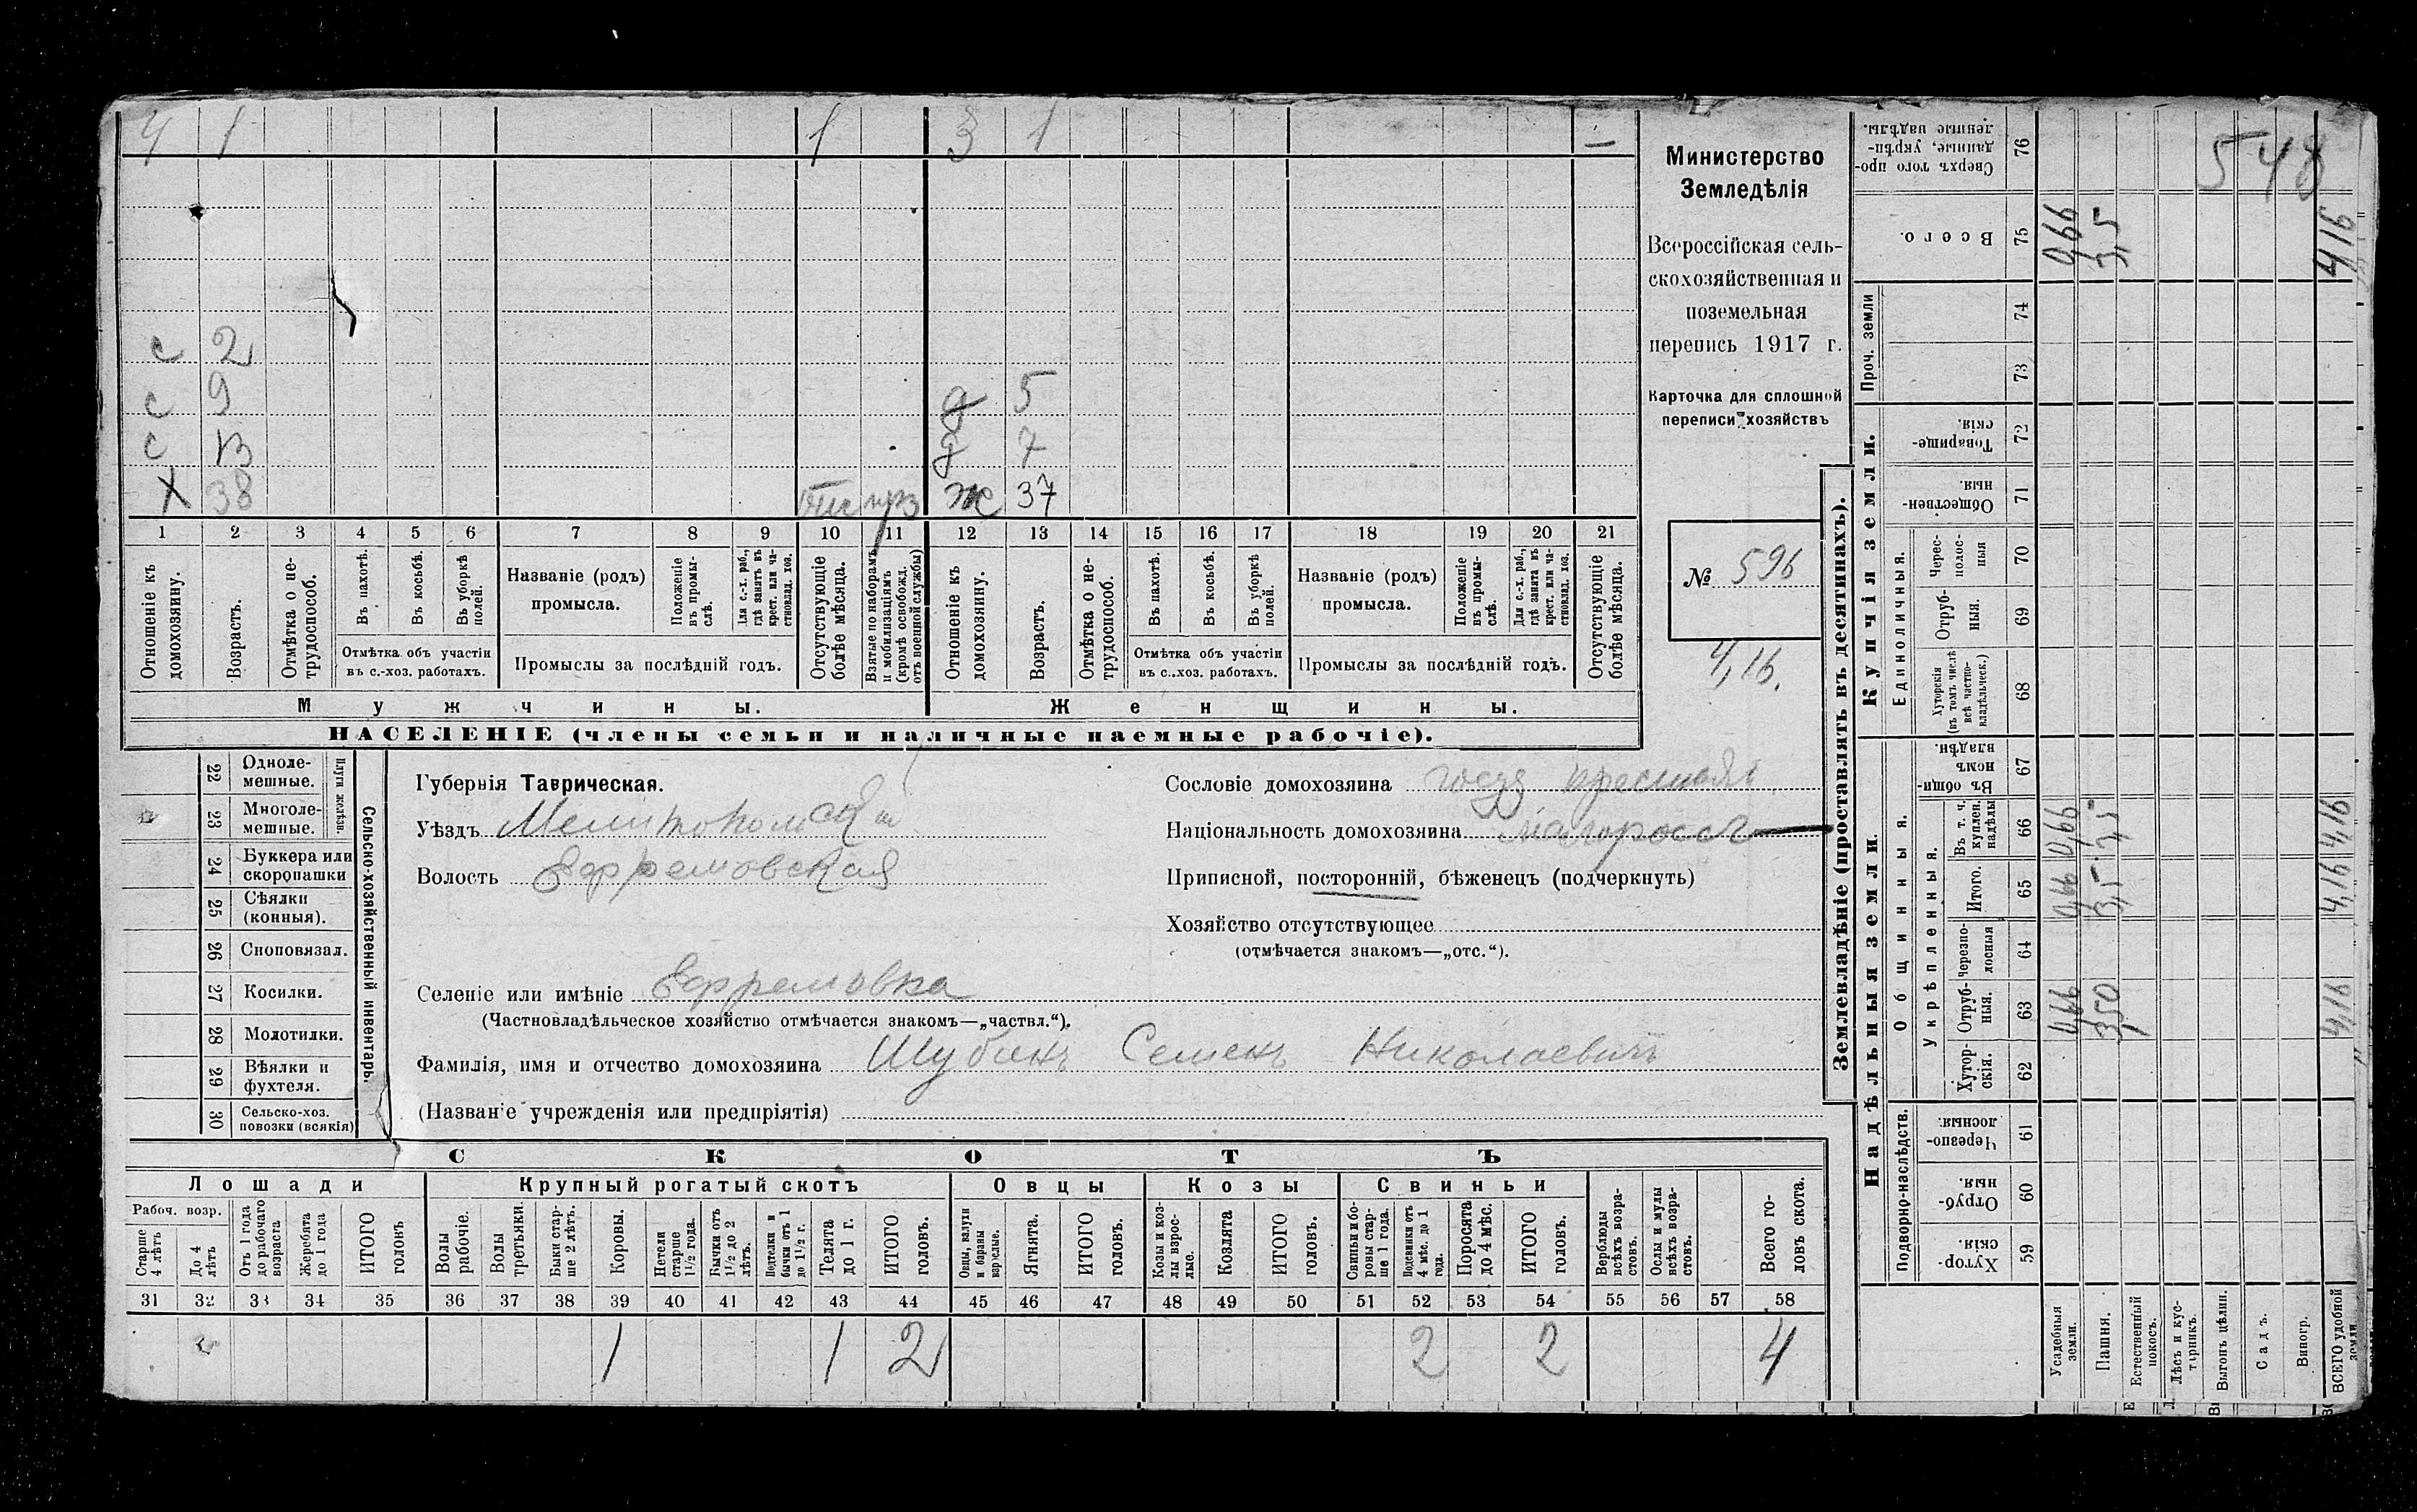 4 1 1 3 1 –
с 2
с 9 д 5
с 13 д 7
х 38 ж 37
1 2 3 4 5 6 7 8 9 10 11 12 13 14 15 16 17 18 19 20 21
Отношеніе къ домохозяину.
Возрастъ.
Отмѣтка о не-
трудоспособ.
Въ пахотѣ.
Въ косьбѣ.
Въ уборкѣ полей.
Отмѣтка объ участіи
въ с.-хоз. работахъ.
Названіе (родъ)
промысла.
Положеніе въ промы-
слѣ.
Для с.-х. раб., гдѣ занятъ въ крест. или ча-
стновлад. хоз.
Промыслы за послѣдній годъ.
Отсутствующіе болѣе мѣсяца.
Взятые по наборамъ и мобилизаціямъ (кромѣ освобожд. отъ военной службы)
Отношеніе къ домохозяину.
Возрастъ.
Отмѣтка о не-
трудоспособ.
Въ пахотѣ.
Въ косьбѣ.
Въ уборкѣ полей.
Отмѣтка объ участіи
въ с.-хоз. работахъ.
Названіе (родъ)
промысла.
Положеніе въ промы-
слѣ.
Для с.-х. раб., гдѣ занята въ крест. или ча-
стновлад. хоз.
Промыслы за послѣдній годъ.
Отсутствующіе болѣе мѣсяца.
Мужчины. Женщины.
НАСЕЛЕНІЕ (члены семьи и наличные наемные рабочіе).
Министерство
Земледѣлія
Всероссійская сель-
скохозяйственная и
поземельная
перепись 1917 г.
Карточка для сплошной
переписи хозяйствъ
№ 596
4,16.
Сельско-хозяйственный инвентарь.
Плуги желѣзн.
22 Одноле-
мешные.
23 Многоле-
мешные.
24 Буккера или
скоропашки
25 Сѣялки
(конныя).
26 Сноповязал.
27 Косилки.
28 Молотилки.
29 Вѣялки и
фухтеля.
30 Сельско-хоз.
повозки (всякія)
Губернія Таврическая.
Уѣздъ Мелитопольскій
Волость Ефремовская
Селеніе или имѣніе Ефремовка
(Частновладѣльческое хозяйство отмѣчается знакомъ—„частвл.“).
Фамилія, имя и отчество домохозяина Шубинъ Семенъ Николаевичъ
(Названіе учрежденія или предпріятія)
Сословіе домохозяина
Національность домохозяина малороссъ
Приписной, посторонній, бѣженецъ (подчеркнуть)
Хозяйство отсутствующее
(отмѣчается знакомъ—„отс.“).
СКОТЪ
Лошади Крупный рогатый скотъ Овцы Козы Свиньи
Рабоч. возр.
Старше 4 лѣтъ
До 4 лѣтъ
Отъ 1 года до рабочаго возраста
Жеребята до 1 года
ИТОГО головъ
Волы рабочіе.
Волы третьяки.
Быки стар-
ше 2 лѣтъ.
Коровы.
Нетели старше 1½ года.
Бычки отъ 1½ до 2 лѣтъ.
Подтелки и бычки отъ 1 до 1½ г.
Телята до 1 г.
ИТОГО головъ.
Овцы, валухи и бараны взрослые.
Ягнята.
ИТОГО головъ.
Козы и коз-
лы взрос-
лые.
Козлята
ИТОГО головъ.
Свиньи и бо-
ровы стар-
ше 1 года.
Подсвинки отъ 4 мѣс. до 1 года.
Поросята до 4 мѣс.
ИТОГО головъ.
Верблюды всѣхъ возра-
стовъ.
Ослы и мулы всѣхъ возра-
стовъ.
Всего го-
ловъ скота.
31 32 33 34 35 36 37 38 39 40 41 42 43 44 45 46 47 48 49 50 51 52 53 54 55 56 57 58
1 1 2 2 2 4
Землевладѣніе (проставлять въ десятинахъ).
Надѣльныя земли. Купчія земли.
Проч. земли
Подворно-наслѣдств.
Общинныя.
Укрѣпленныя.
Единоличныя.
59 Хутор-
скія.
60 Отруб-
ныя.
61 Черезпо-
лосныя.
62 Хутор-
скія.
63 Отруб-
ныя.
64 Черезпо-
лосныя
65 Итого.
66 Въ т. ч. куплен. надѣлы
67 Въ общи-
номъ владѣн.
68 Хуторскія (въ томъ числѣ всѣ частно-
владѣльческ.)
69 Отруб-
ныя.
70 Черес-
полос-
ныя
71 Обществен-
ныя.
72 Товарище-
скія.
73
74
75 Всего.
76 Сверхъ того про-
данные, укрѣп-
ленные надѣлы.
Усадебныя земли. 0,66 0,66 0,66 0,66
Пашня. 3,50 3,5 3,5 3,5
Естественный покосъ.
Лѣсъ и кус-
тарникъ.
Выгонъ цѣлин.
Садъ.
Виногр.
ВСЕГО удобной земли. 4,16 4,16 4,16 4,16
548